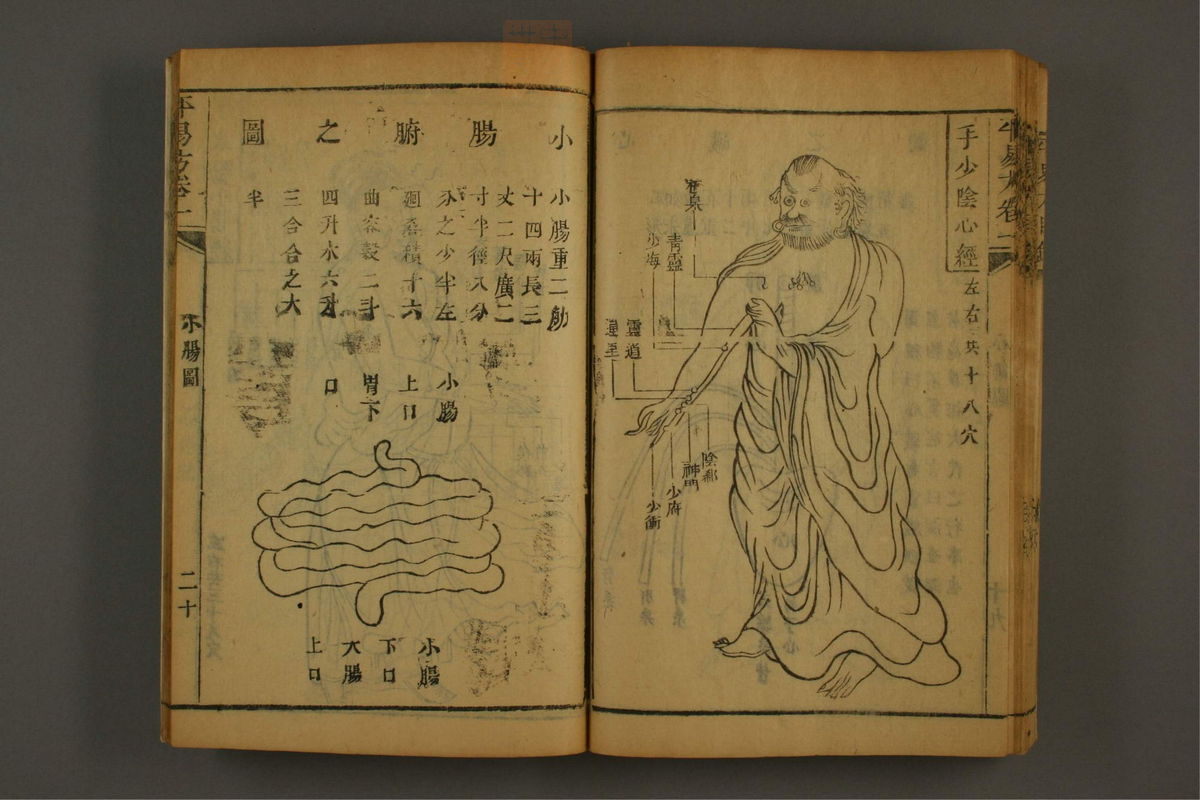 手少陰心經
左右共十八穴
極泉
青靈
少海
靈道
通里
陰郄
神門
少府
少衝
小腸腑之圖
小腸重二觔
十四兩長三
丈二尺廣二
寸半徑八分
分之少半左
廻疊積十六
曲容穀二斗
四升水六升
三合合之大
半
小腸
上口
胃下
口
小腸
下口
大腸
上口
平易方卷二
小腸圖
二十